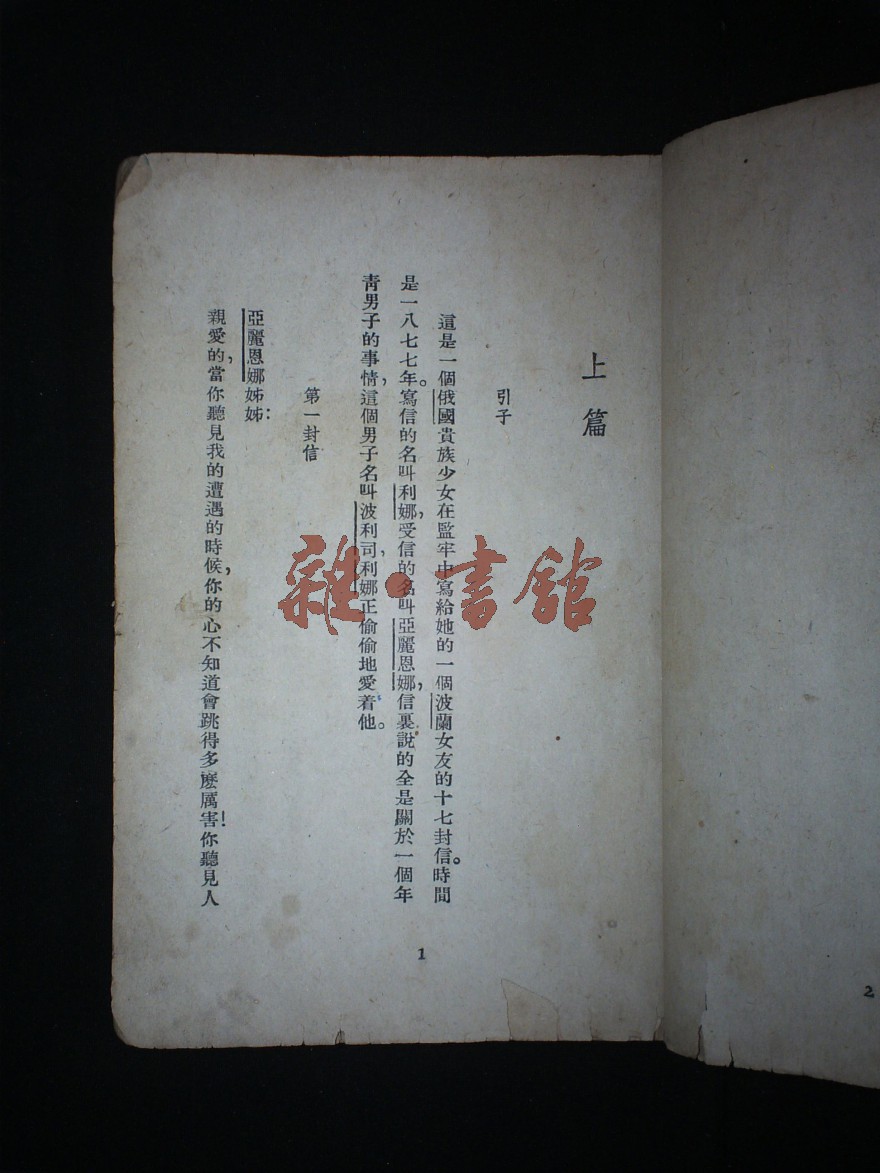 上篇
引子
這是一個俄國貴族少女在監牢中寫給她的一個波蘭女友的十七封信。時間
是一八七七年。寫信的名叫利娜,受信的名叫亞麗恩娜,信裏說的全是關於一個年
靑男子的事情,這個男子名叫波利司,利娜正偷偷地愛着他。
第一封信
亞麗恩娜姊姊:
親愛的,當你聽見我的遭遇的時候,你的心不知道會跳得多麽厲害!你聽見人
1
2
雜·書館